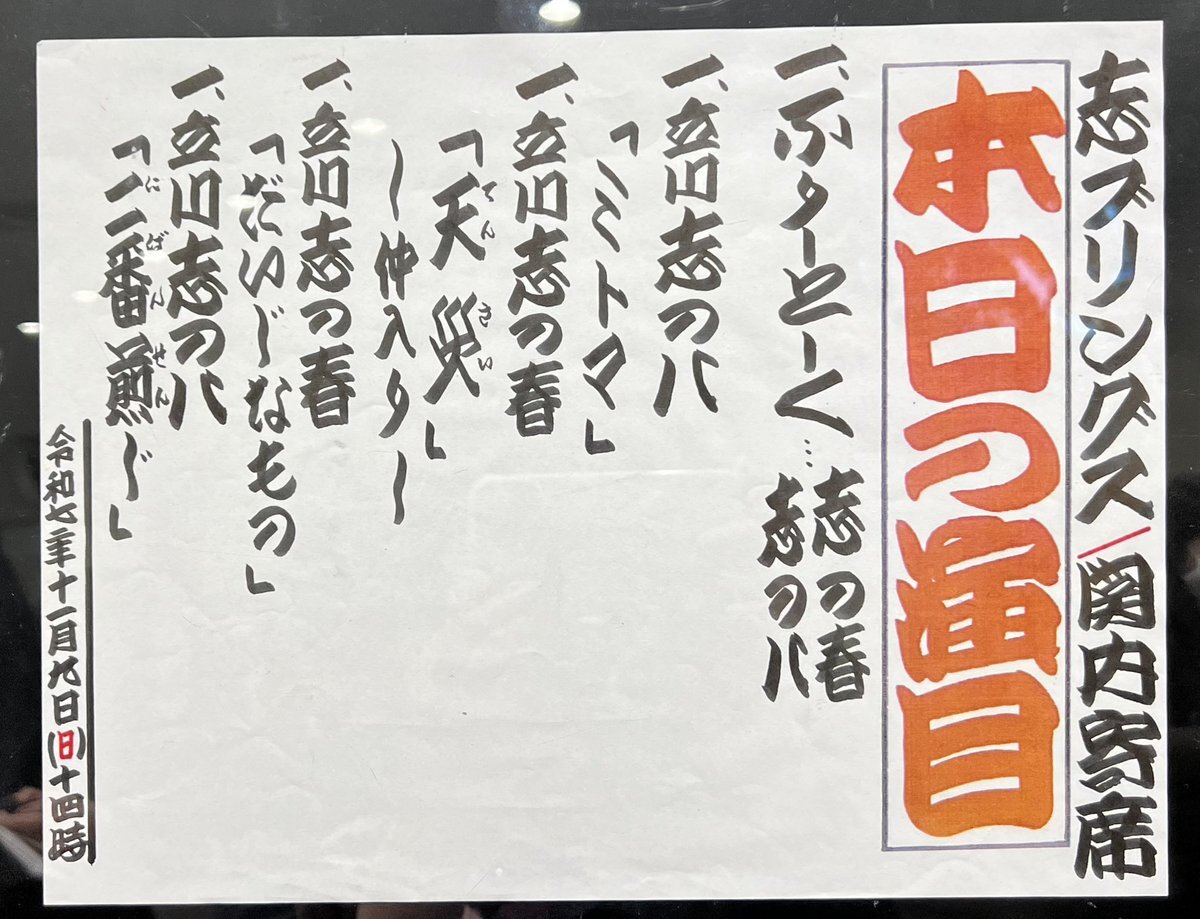 志ブリングス/関内寄席
本日の演目
一、ふりーとーく…志の春
志の八
一、立川志の八
「ミトマ」
一、立川志の春
「天災」
てんさい
〜仲入り〜
一、立川志の春
「だいじなもの」
一、立川志の八
「二番煎じ」
にばんせん
令和七年十一月九日(日)十四時